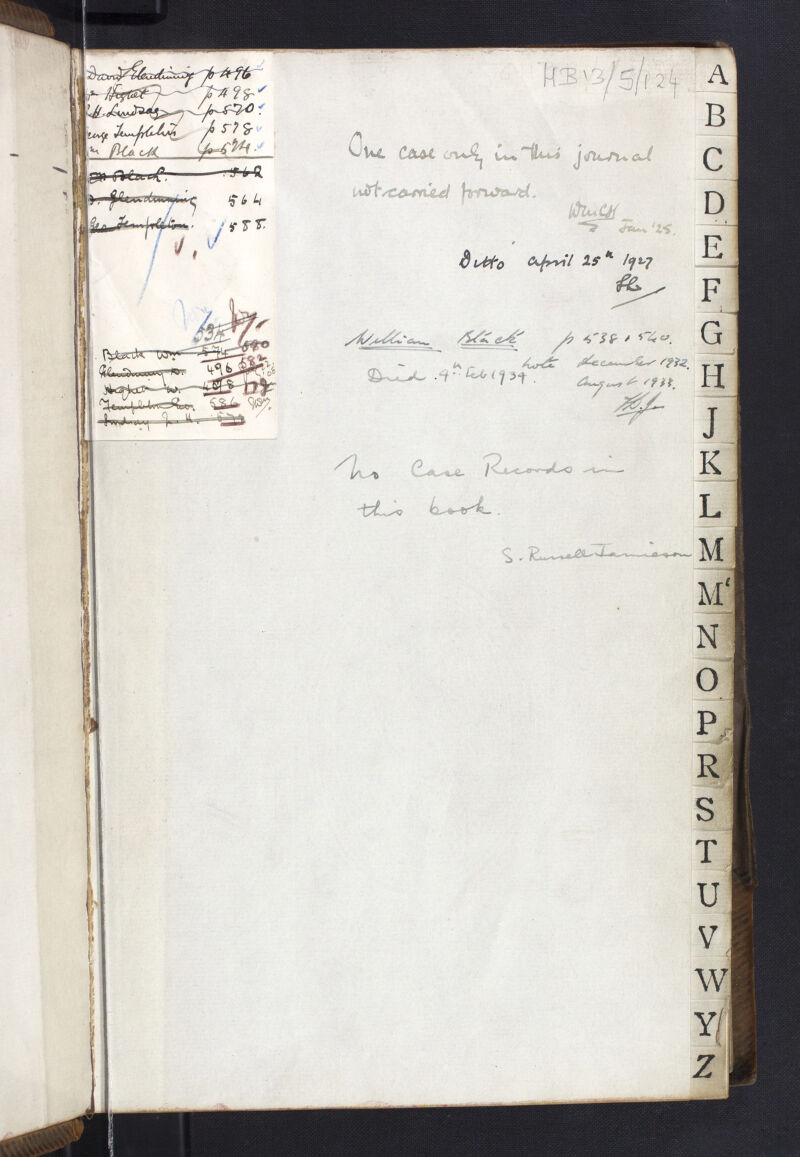 David Glendinning p 496
Hignet p 498
H. Lindsay p 570.
George Templeton p 578
Wm Black p 574.
Wm Black. 562
D. Glendinning 564
Geo Templeton. 588.
534
Black Wm 574 580
Glendinning D. 496 582
W. 498
Templeton Geo. 586
Lindsay J. H. 570
HB13/5/124
One case only in this journal
not carried forward.
Jan '25.
Ditto April 25th 1927
William Black p 538 & 540.
note December 1932.
Died 4th Feb 1934. August 1933.
No Case Records in
this book.
S. Russell Jamieson
A
B
C
D
E
F
G
H
J
K
L
M
Mc
N
O
P
R
S
T
U
V
W
Y
Z